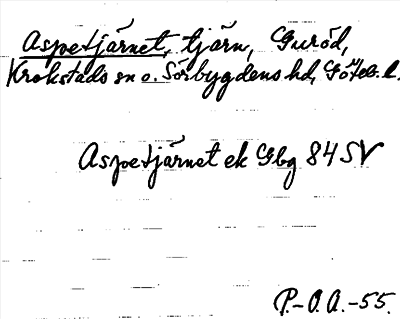 Aspetjärnet, tjärn, Guröd,
Krokstads sn o. Sörbygdens hd, Göteb. l.
Aspetjärnet ek Gbg 84 SV
P.-O.A.-55.